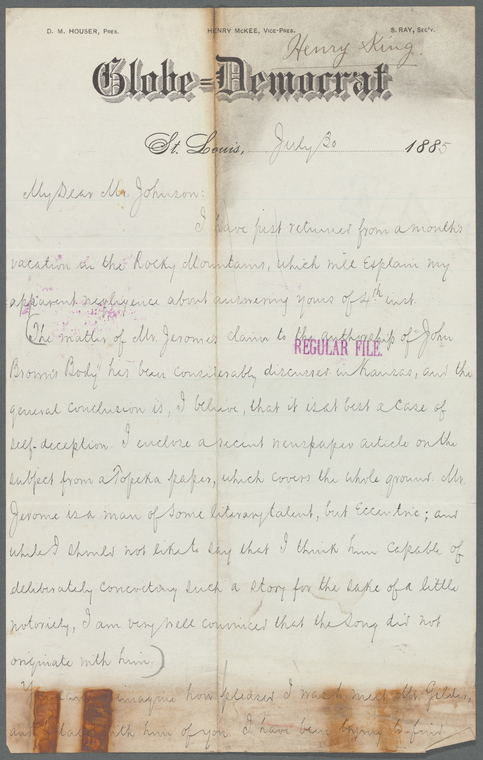 D. M. HOUSER, PRES. HENRY MCKEE, VICE-PRES. S. RAY, SEC'Y.
Henry King.
Globe=Democrat
St. Louis, July 30 1885
My Dear Mr. Johnson:
I have just returned from a month's
vacation in the Rocky Mountains, which will explain my
apparent negligence about answering yours of 4th inst.
(The matter of Mr. Jerome's claim to the authorship of "John
REGULAR FILE.
Brown's Body" has been considerably discussed in Kansas, and the
general conclusion is, I believe, that it is at best a case of
self-deception. I enclose a recent newspaper article on the
subject from a Topeka paper, which covers the whole ground. Mr.
Jerome is a man of some literary talent, but eccentric; and
while I should not like to say that I think him capable of
deliberately concocting such a story for the sake of a little
notoriety, I am very well convinced that the song did not
originate with him.)
imagine how pleased I was to meet Mr. Gilder,
and talk with him of you. I have been trying to find